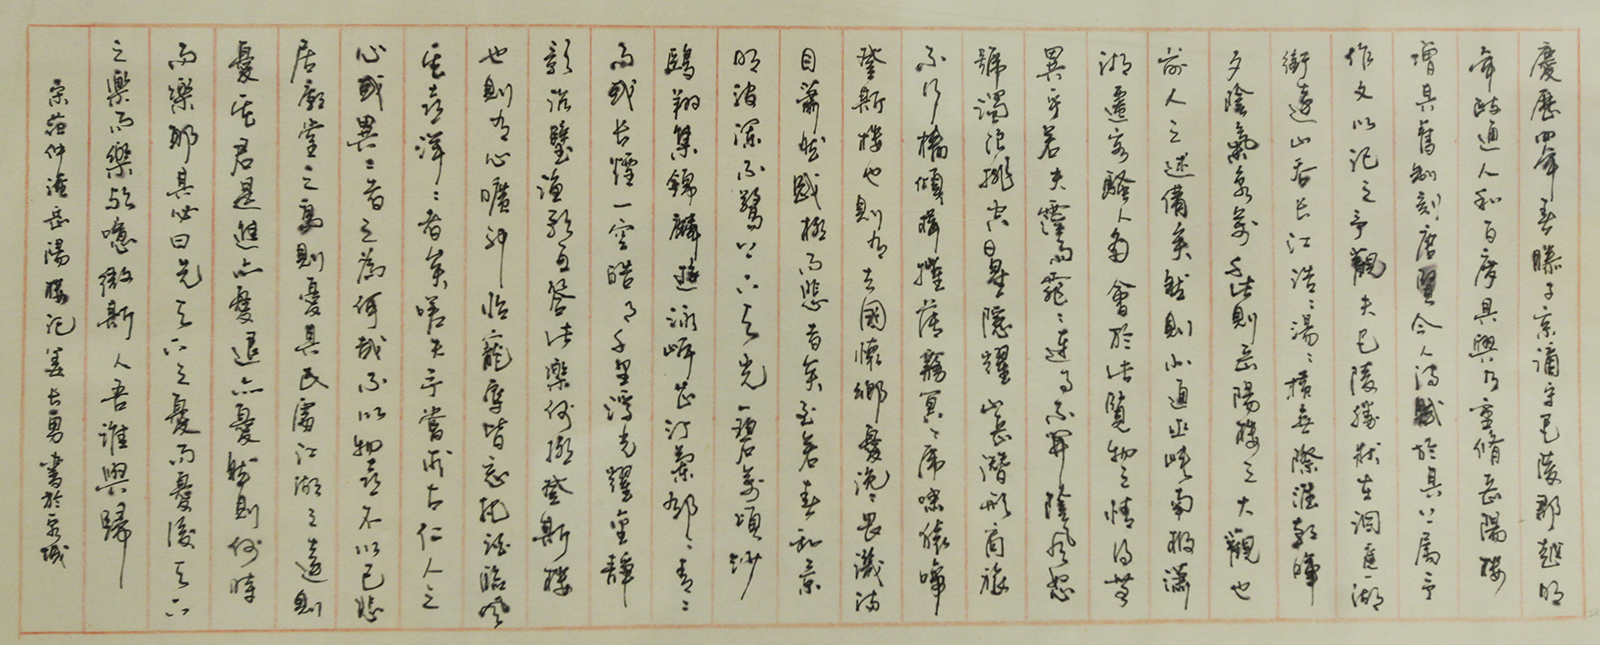 慶歷四年春滕子京謫守巴陵郡越明
年政通人和百廢具興乃重脩岳陽樓
增其舊制刻唐賢今人詩賦於其上屬予
作文以記之予觀夫巴陵勝狀在洞庭一湖
銜遠山吞長江浩〻湯〻橫無際涯朝暉
夕陰氣象萬千此則岳陽樓之大觀也
前人之述備矣然則北通巫峽南極瀟
湘遷客騷人多會於此覽物之情得無
異乎若夫霪雨霏〻連月不開陰風怒
號濁浪排空日星隱耀山岳潛形商旅
不行檣傾楫摧薄暮冥〻虎嘯猿啼
登斯樓也則有去國懷鄉憂讒畏譏滿
目蕭然感極而悲者矣至若春和景
明波瀾不驚上下天光一碧萬頃沙
鷗翔集錦鱗游泳岸芷汀蘭郁〻青〻
而或長煙一空皓月千里浮光耀金靜
影沉璧漁歌互答此樂何極登斯樓
也則有心曠神怡寵辱皆忘把酒臨風
其喜洋〻者矣嗟夫予嘗求古仁人之
心或異二者之為何哉不以物喜不以己悲
居廟堂之高則憂其民處江湖之遠則
憂其君是進亦憂退亦憂然則何時
而樂耶其必曰先天下之憂而憂後天下
之樂而樂歟噫微斯人吾誰與歸
宋范仲淹岳陽樓記姜長勇書於京城